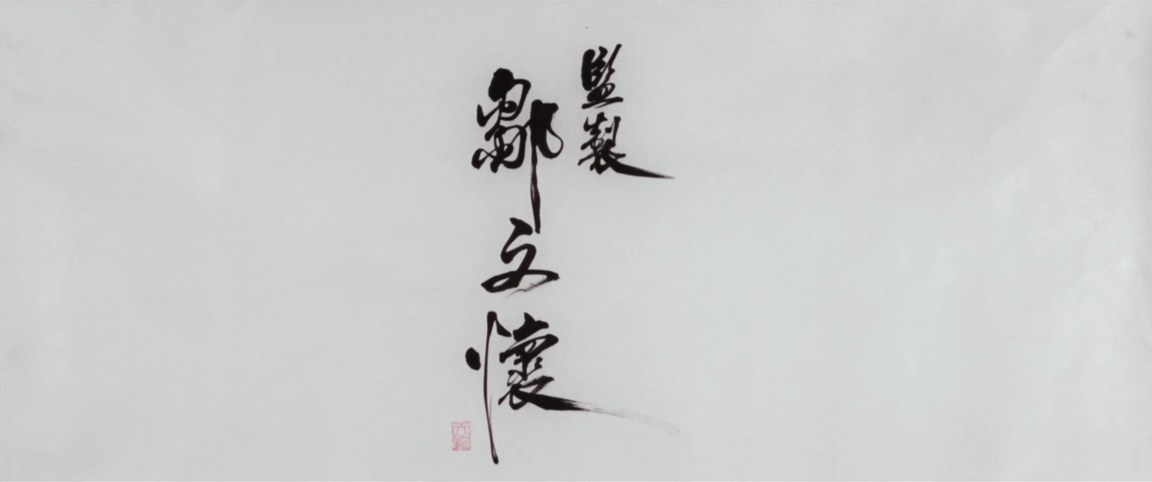 監製
鄒文懷